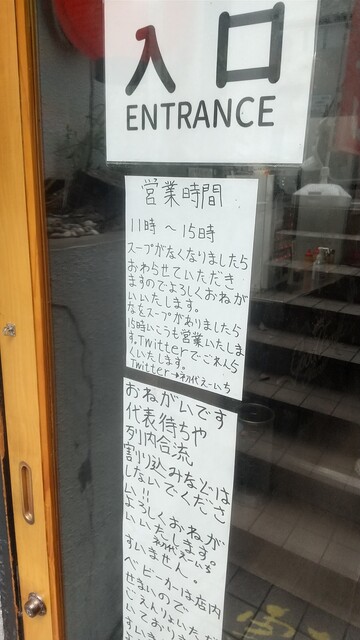 入口
ENTRANCE
営業時間
11時 〜 15時
スープがなくなりましたら
おわらせていただき
ますのでよろしくおねが
いいたします。
なをスープがありましたら
15時いこうも営業いたしま
す。Twitterでごれんら
くいたします。
Twitter→初代えーいち
おねがいです
代表待ちや
列内合流
割り込みなどは
しないでくださ
い!!
よろしくおねが
いいたします。
初代えーいち
すいません。
ベビーカーは店内
せまいので
ごえんりょいただ
いており